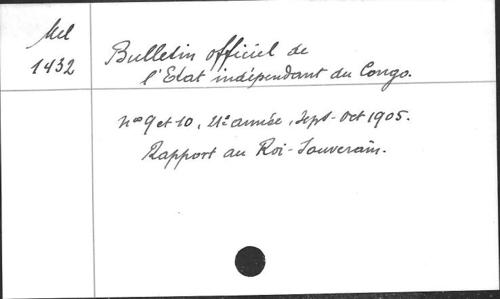 Mel
1432
Bulletin officiel de
l'Etat indépendant du Congo.
nos 9 et 10, 21e année, Sept-Oct 1905.
Rapport au Roi-Souverain.